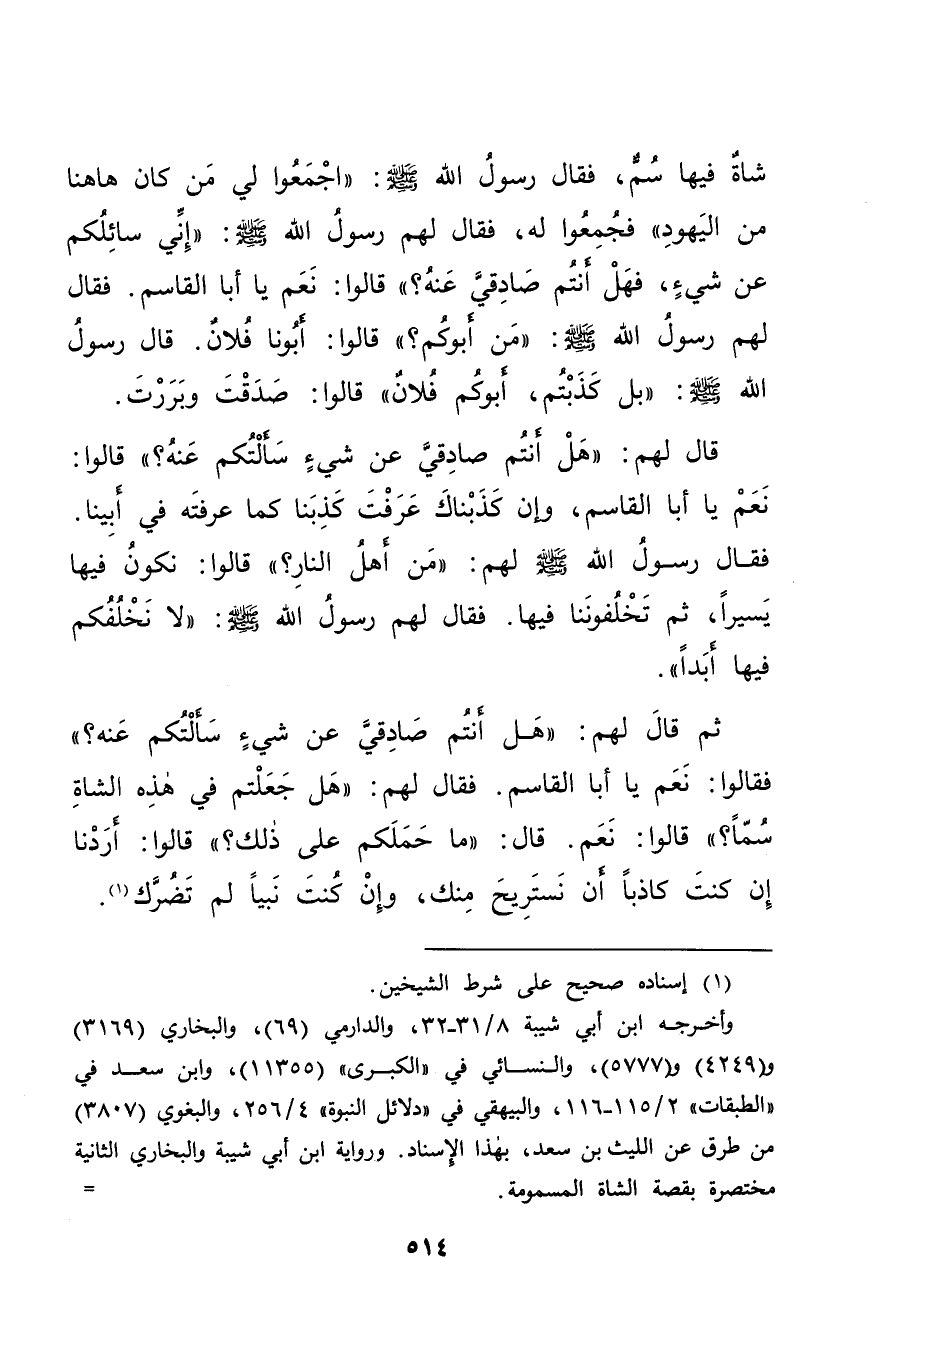 شاةٌ فيها سُمٌّ، فقال رسولُ الله ﷺ: «اجْمَعُوا لي مَن كان هاهنا
من اليَهودِ» فجُمِعُوا له، فقال لهم رسولُ الله ﷺ: «إنِّي سائِلُكم
عن شيءٍ، فهَلْ أَنتُم صَادِقيَّ عَنهُ؟» قالوا: نَعَم يا أبا القاسم. فقال
لهم رسولُ الله ﷺ: «مَن أَبوكُم؟» قالوا: أَبُونا فُلانٌ. قال رسولُ
الله ﷺ: «بل كَذَبْتُم، أَبوكُم فُلانٌ» قالوا: صَدَقْتَ وبَرَرْتَ.
قال لهم: «هَلْ أَنتُم صادِقيَّ عن شيءٍ سَأَلْتُكم عَنهُ؟» قالوا:
نَعَمْ يا أبا القاسم، وإن كَذَبْناكَ عَرَفْتَ كَذِبَنا كما عرفتَه في أَبِينا.
فقال رسولُ الله ﷺ لهم: «مَن أَهلُ النارِ؟» قالوا: نكونُ فيها
يَسيراً، ثم تَخْلُفونَنا فيها. فقال لهم رسولُ الله ﷺ: «لا نَخْلُفُكم
فيها أَبَداً».
ثم قالَ لهم: «هَل أَنتُم صَادِقيَّ عن شيءٍ سَأَلْتُكم عَنه؟»
فقالوا: نَعَم يا أبا القاسم. فقال لهم: «هَل جَعَلْتم في هٰذِه الشاةِ
سُمّاً؟» قالوا: نَعَم. قال: «ما حَمَلَكم على ذٰلك؟» قالوا: أَرَدْنا
إن كنتَ كاذباً أَن نَستَرِيحَ مِنك، وإنْ كُنتَ نَبياً لم تَضُرَّك(١).
(١) إسناده صحيح على شرط الشيخين.
وأخرجه ابن أبي شيبة ٣١/٨-٣٢، والدارمي (٦٩)، والبخاري (٣١٦٩)
و(٤٢٤٩) و(٥٧٧٧)، والنسائي في «الكبرى» (١١٣٥٥)، وابن سعد في
«الطبقات» ١١٥/٢-١١٦، والبيهقي في «دلائل النبوة» ٢٥٦/٤، والبغوي (٣٨٠٧)
من طرق عن الليث بن سعد، بهٰذا الإسناد. ورواية ابن أبي شيبة والبخاري الثانية
مختصرة بقصة الشاة المسمومة. =
٥١٤